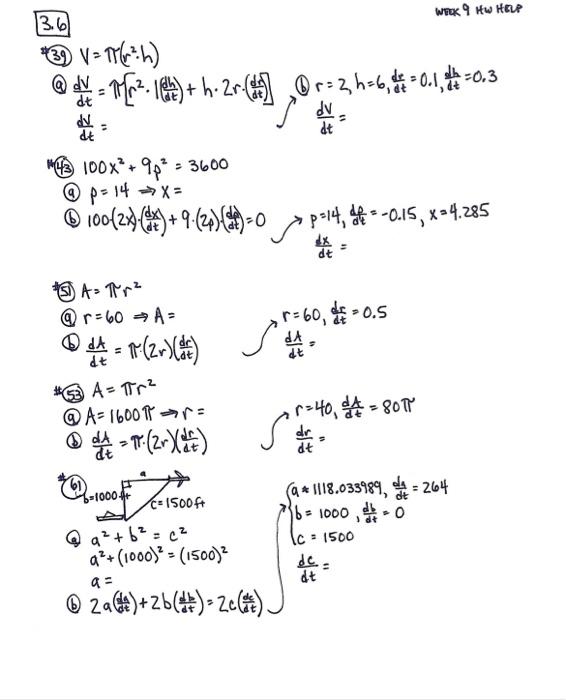 WEEK 9 HW HELP
3.6
#39 V = π(r²·h)
(a) dV/dt = π[r²·1(dh/dt) + h·2r·(dr/dt)]
dV/dt =
(b) r = 2, h = 6, dr/dt = 0.1, dh/dt = 0.3
dV/dt =
#43 100x² + 9p² = 3600
(a) p = 14 ⇒ x =
(b) 100·(2x)·(dx/dt) + 9·(2p)·(dp/dt) = 0
p = 14, dp/dt = -0.15, x = 4.285
dx/dt =
#51 A = πr²
(a) r = 60 ⇒ A =
(b) dA/dt = π·(2r)(dr/dt)
r = 60, dr/dt = 0.5
dA/dt =
#53 A = πr²
(a) A = 1600π ⇒ r =
(b) dA/dt = π·(2r)(dr/dt)
r = 40, dA/dt = 80π
dr/dt =
#61
a
b = 1000 ft
c = 1500 ft
(a) a² + b² = c²
a² + (1000)² = (1500)²
a =
(b) 2a(da/dt) + 2b(db/dt) = 2c(dc/dt)
a ≈ 1118.033989, da/dt = 264
b = 1000, db/dt = 0
c = 1500
dc/dt =